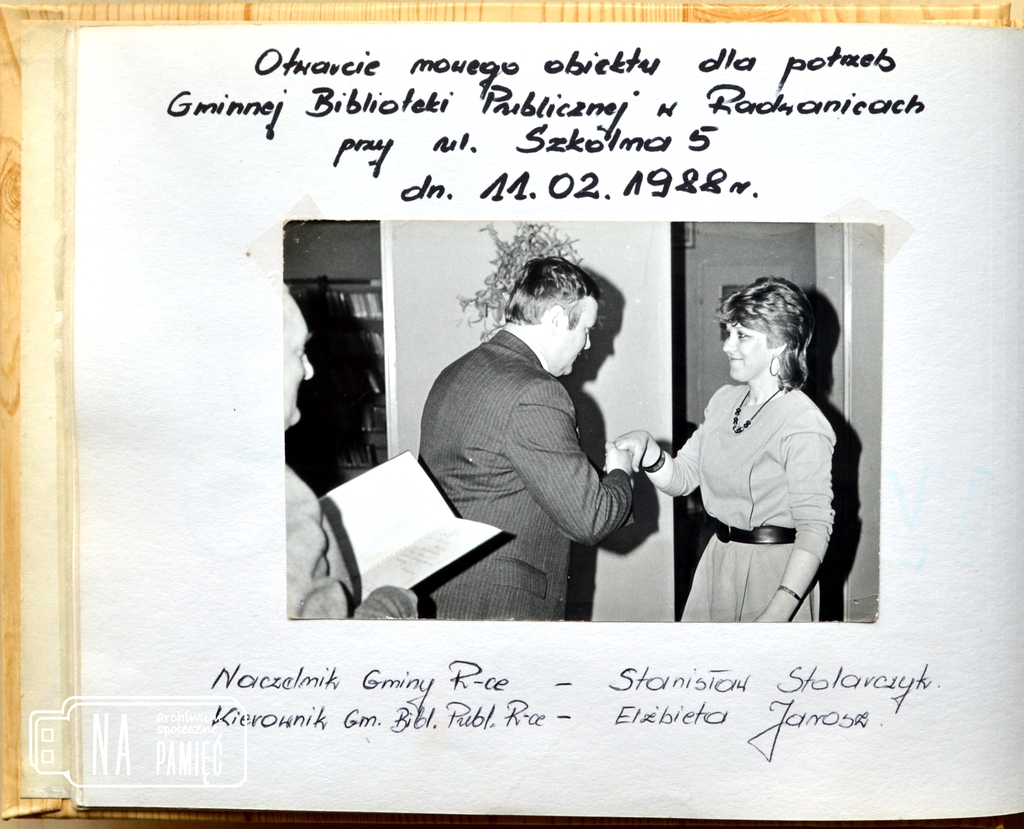 Otwarcie nowego obiektu dla potrzeb
Gminnej Biblioteki Publicznej w Radwanicach
przy ul. Szkólna 5
dn. 11.02.1988r.
Naczelnik Gminy R-ce – Stanisław Stolarczyk.
Kierownik Gm. Bibl. Publ. R-ce – Elżbieta Jarosz.
NA archiwum społeczne PAMIĘĆ